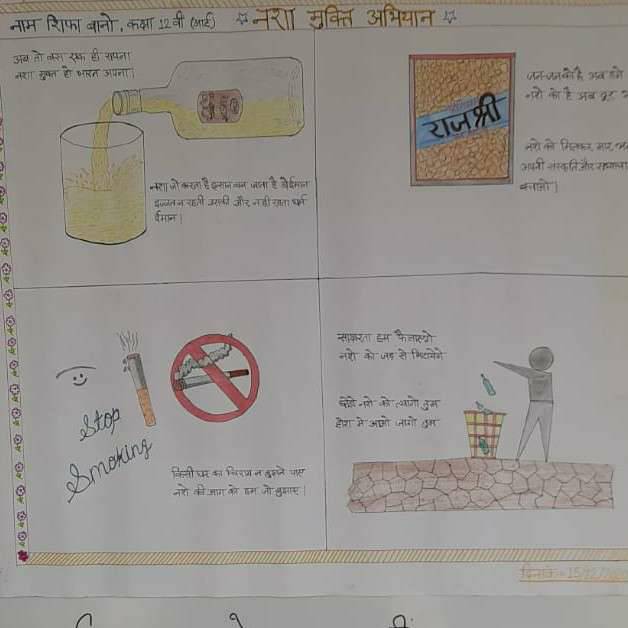 नाम शिफा बानो, कक्षा 12 वी (आर्ट)
☆ नशा मुक्ति अभियान ☆
अब तो बस एक ही सपना
नशा मुक्त हो भारत अपना
नशा जो करता है इन्सान बन जाता है बेईमान
इज्जत न रहती उसकी और नही रहता धर्म
ईमान।
राजश्री
जन-जन की है अब
नशे की है अब
नशे को मिलकर मार
अपनी संस्कृति और सभ्यता
बचाओ।
Stop
Smoking
किसी घर का चिराग न बुझने पाए
नशे की आग को हम जो बुझाए।
साक्षरता हम फैलाएंगे
नशे को जड़ से मिटायेंगे
छोड़ो नशे को त्यागो तुम
होश मे आओ जागो तुम
दिनांक - 15/12/